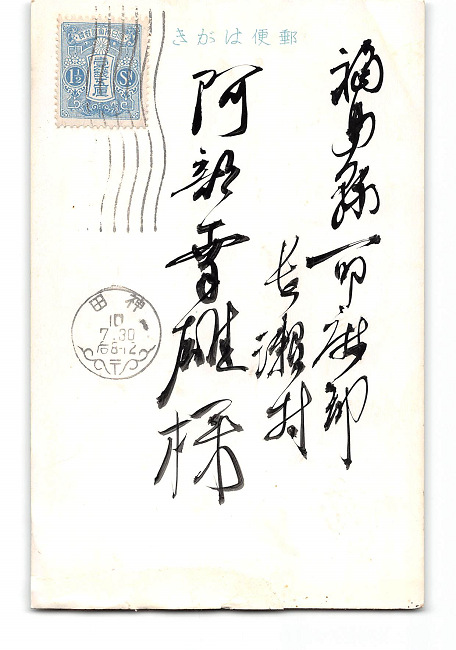 郵便はがき
福島縣耶麻郡
長瀬村
阿部幸雄様
1½ Sn.
神田
10
7.30
后8-12